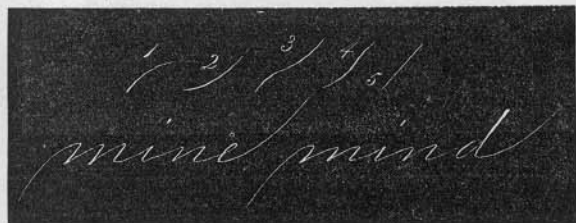 1 2 3 4 5
mine mind